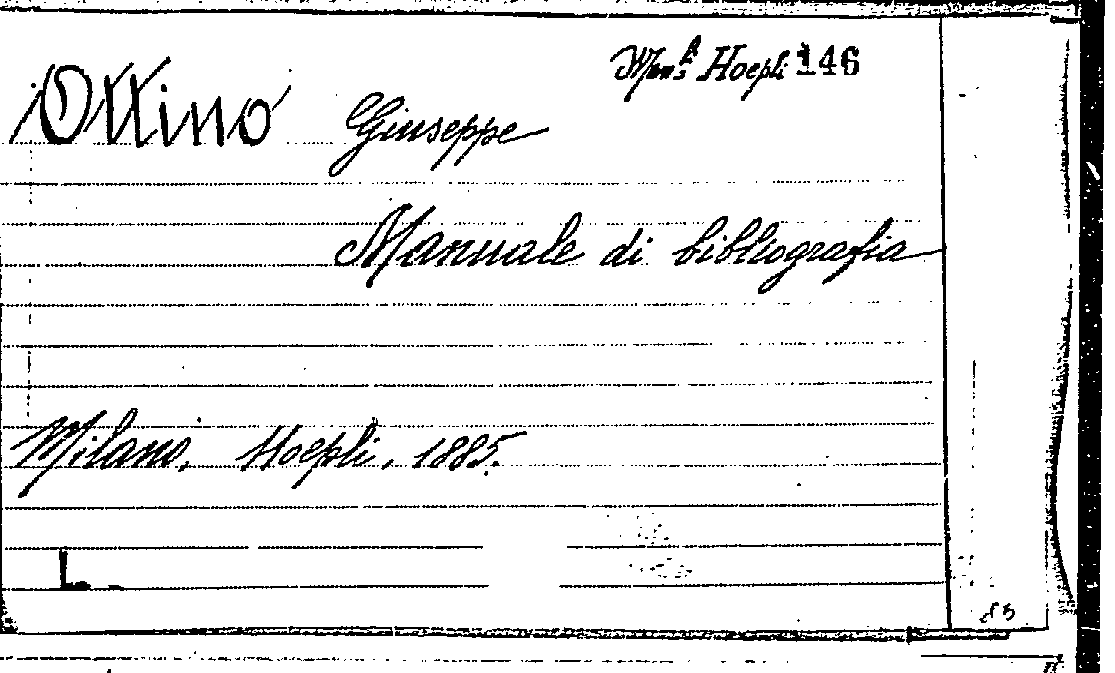 Man.li Hoepli 146
Ottino Giuseppe
Manuale di bibliografia
Milano, Hoepli, 1885.